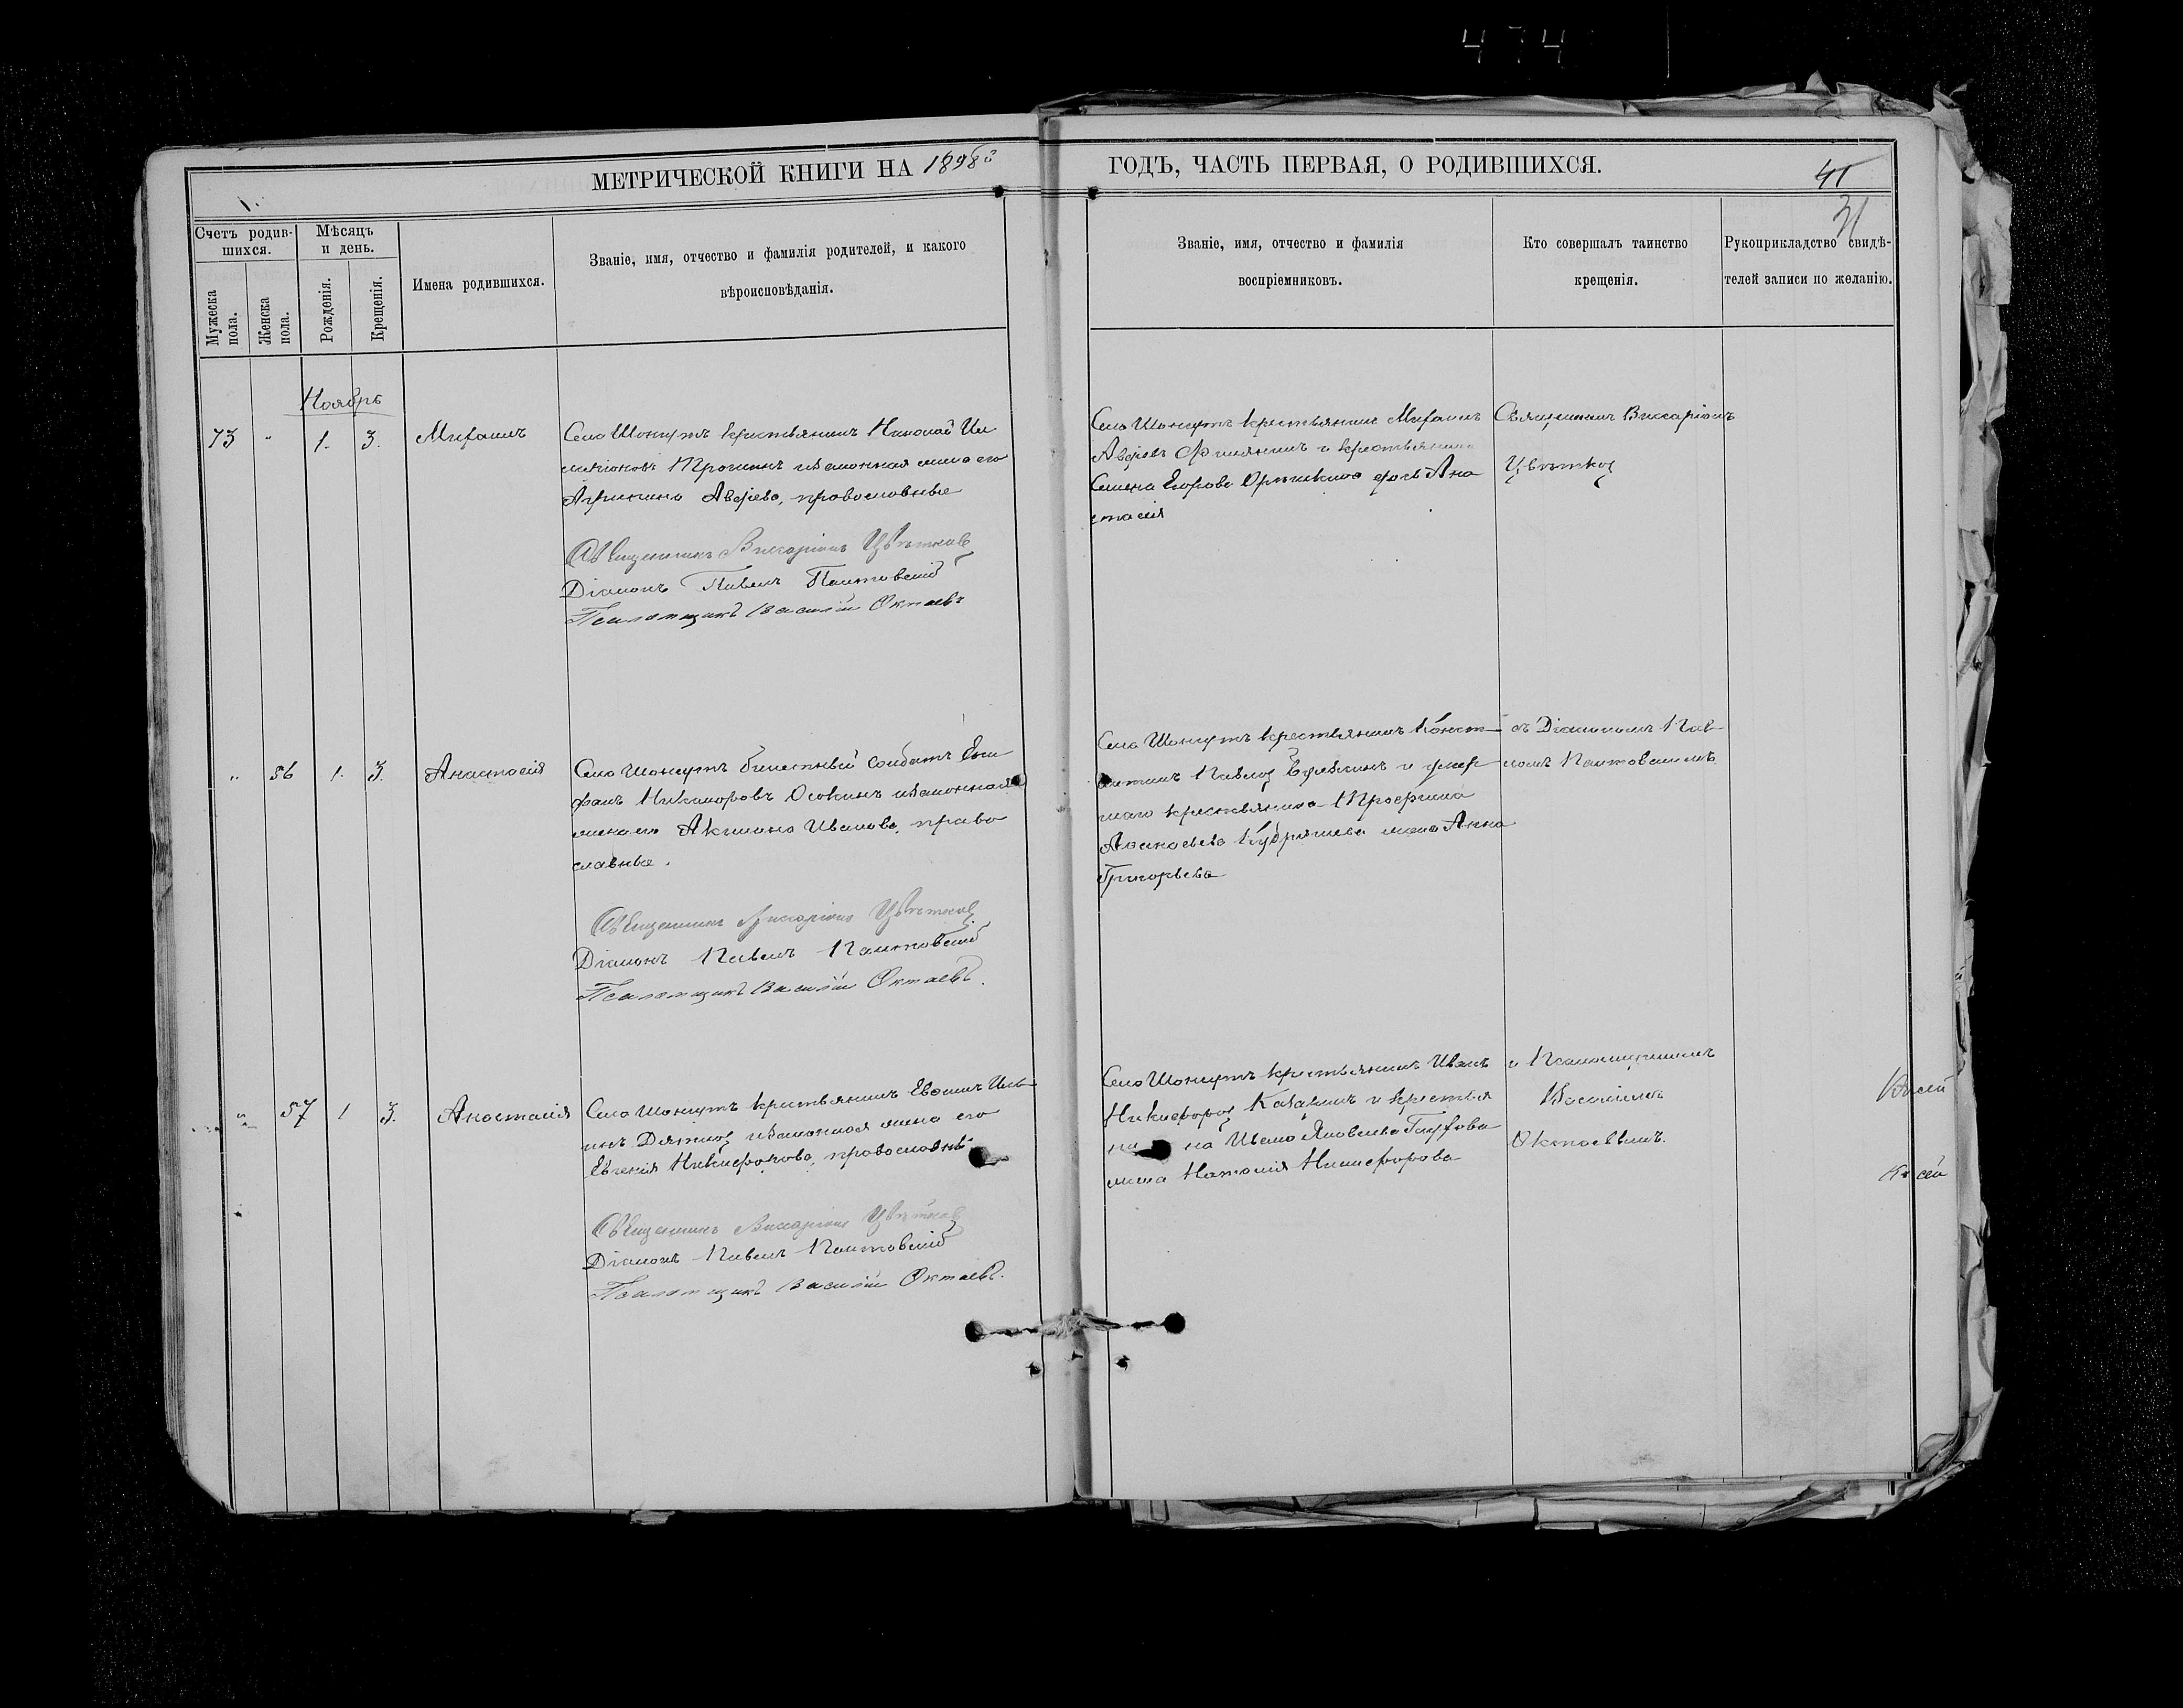 474
МЕТРИЧЕСКОЙ КНИГИ НА 1898й
ГОДЪ, ЧАСТЬ ПЕРВАЯ, О РОДИВШИХСЯ.
41
31
1.
Счетъ родив-
шихся.
Мужеска
пола.
Женска
пола.
Мѣсяцъ
и день.
Рожденія.
Крещенія.
Имена родившихся.
Званіе, имя, отчество и фамилія родителей, и какого
вѣроисповѣданія.
Званіе, имя, отчество и фамилія
воспріемниковъ.
Кто совершалъ таинство
крещенія.
Рукоприкладство свидѣ-
телей записи по желанію.
Ноябрь
73 " 1. 3. Михаилъ
Села Шонгутъ крестьянинъ Николай
Трошинъ и законная жена его
Агрипина Авѣрева, православные
Священникъ Виссаріонъ Цвѣтковъ
Діаконъ Павелъ Пантовскій
Псаломщикъ Василій Октаевъ
Села Шонгутъ крестьянинъ Михаилъ
и крестьянина
Семена Егорова дочь Ана
стасія
Священникъ Виссаріонъ
Цвѣтковъ
" 56 1. 3. Анастасія
Села Шонгутъ билетный солдатъ Епи
фанъ Никаноровъ Осокинъ и законная
жена его Акилина Иванова, право
славные.
Священникъ Виссаріонъ Цвѣтковъ
Діаконъ Павелъ Пантовскій
Псаломщикъ Василій Октаевъ.
Села Шонгутъ крестьянинъ Конст-
антинъ Павловъ и умер-
шаго крестьянина Трофима
Кудряшева жена Анна
Григорьева
съ Діакономъ Пав-
ломъ Пантовскимъ
" 57 1 3. Анастасія
Села Шонгутъ крестьянинъ Евфимъ Иль-
инъ и законная жена его
Евгенія Никифорова, православные
Священникъ Виссаріонъ Цвѣтковъ
Діаконъ Павелъ Пантовскій
Псаломщикъ Василій Октаевъ.
Села Шонгутъ крестьянинъ Иванъ
Никифоровъ Казакинъ и крестья
нина Ивана Яковлева
жена Наталія Никифорова
и Псаломщикомъ
Василіемъ
Октаевымъ.